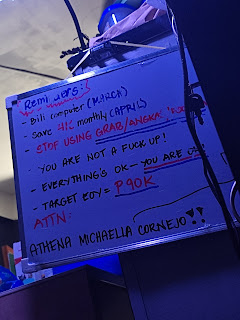 Reminders:
- Bili computer (MARCH)
- Save 4K monthly (APRIL)
- STOP USING GRAB/ANGKAS!
- YOU ARE NOT A FUCK UP!
- EVERYTHING'S OK - YOU ARE OK!
- TARGET EOY = P90K
ATTN:
ATHENA MICHAELLA CORNEJO!!